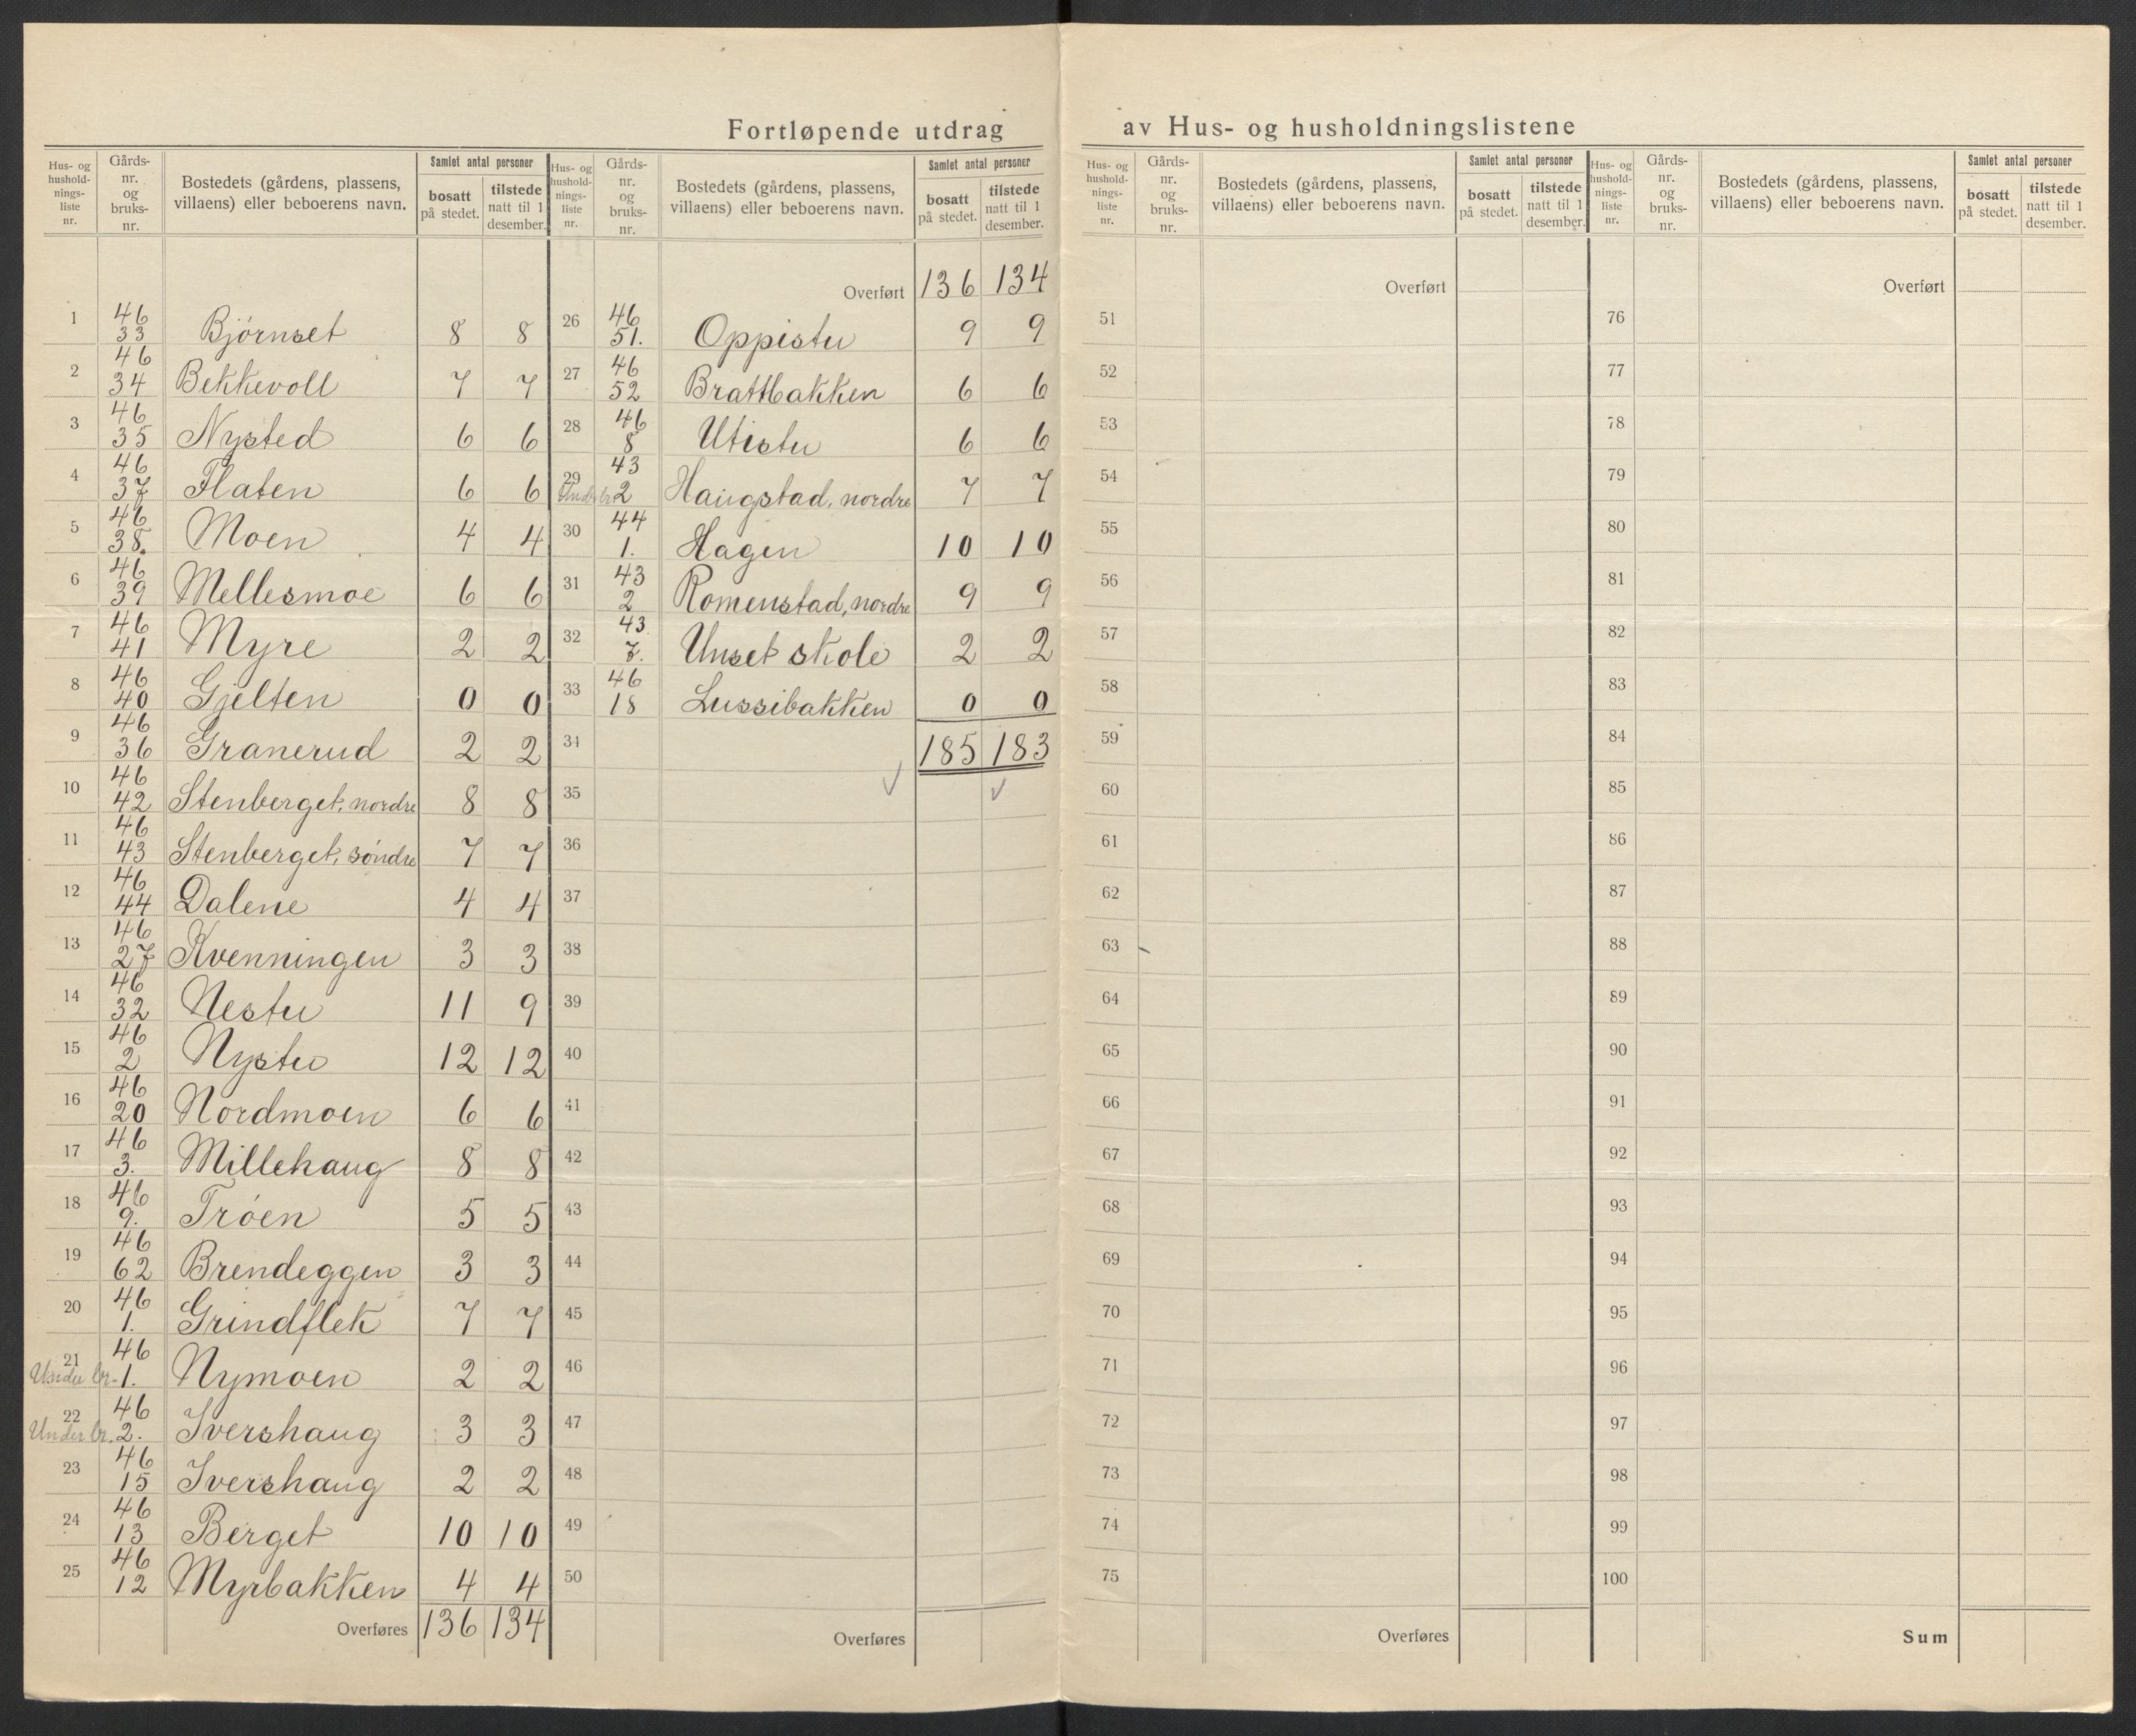 Fortløpende utdrag av Hus- og husholdningslistene
Hus- og hushold- nings- liste nr. | Gårds- nr. og bruks- nr. | Bostedets (gårdens, plassens, villaens) eller beboerens navn. | Samlet antal personer | bosatt på stedet. | tilstede natt til 1 desember.
1 46 33 Bjørnset 8 8
2 46 34 Bekkevoll 7 7
3 46 35 Nysted 6 6
4 46 37 Flaten 6 6
5 46 38. Moen 4 4
6 46 39 Mellesmoe 6 6
7 46 41 Myre 2 2
8 46 40 Gjelten 0 0
9 46 36 Granerud 2 2
10 46 42 Stenberget, nordre 8 8
11 46 43 Stenberget, søndre 7 7
12 46 44 Dalene 4 4
13 46 27 Kvenningen 3 3
14 46 32 Nestu 11 9
15 46 2 Nystu 12 12
16 46 20 Nordmoen 6 6
17 46 3. Millehaug 8 8
18 46 9. Trøen 5 5
19 46 62 Brendeggen 3 3
20 46 1. Grindflek 7 7
21 Under br. 46 1. Nymoen 2 2
22 Under br. 46 2. Ivershaug 3 3
23 46 15 Ivershaug 2 2
24 46 13 Berget 10 10
25 46 12 Myrbakken 4 4
Overføres 136 134
Hus- og hushold- nings- liste nr. | Gårds- nr. og bruks- nr. | Bostedets (gårdens, plassens, villaens) eller beboerens navn. | Samlet antal personer | bosatt på stedet. | tilstede natt til 1 desember.
Overført 136 134
26 46 51. Oppistu 9 9
27 46 52 Brattbakken 6 6
28 46 8 Utistu 6 6
29 Under br 43 2 Haugstad, nordre 7 7
30 44 1. Hagen 10 10
31 43 2 Romenstad, nordre 9 9
32 43 7. Unset skole 2 2
33 46 18 Lussibakken 0 0
34 185 183
35
36
37
38
39
40
41
42
43
44
45
46
47
48
49
50
Overføres
Hus- og hushold- nings- liste nr. | Gårds- nr. og bruks- nr. | Bostedets (gårdens, plassens, villaens) eller beboerens navn. | Samlet antal personer | bosatt på stedet. | tilstede natt til 1 desember.
Overført
51
52
53
54
55
56
57
58
59
60
61
62
63
64
65
66
67
68
69
70
71
72
73
74
75
Overføres
Hus- og hushold- nings- liste nr. | Gårds- nr. og bruks- nr. | Bostedets (gårdens, plassens, villaens) eller beboerens navn. | Samlet antal personer | bosatt på stedet. | tilstede natt til 1 desember.
Overført
76
77
78
79
80
81
82
83
84
85
86
87
88
89
90
91
92
93
94
95
96
97
98
99
100
Sum